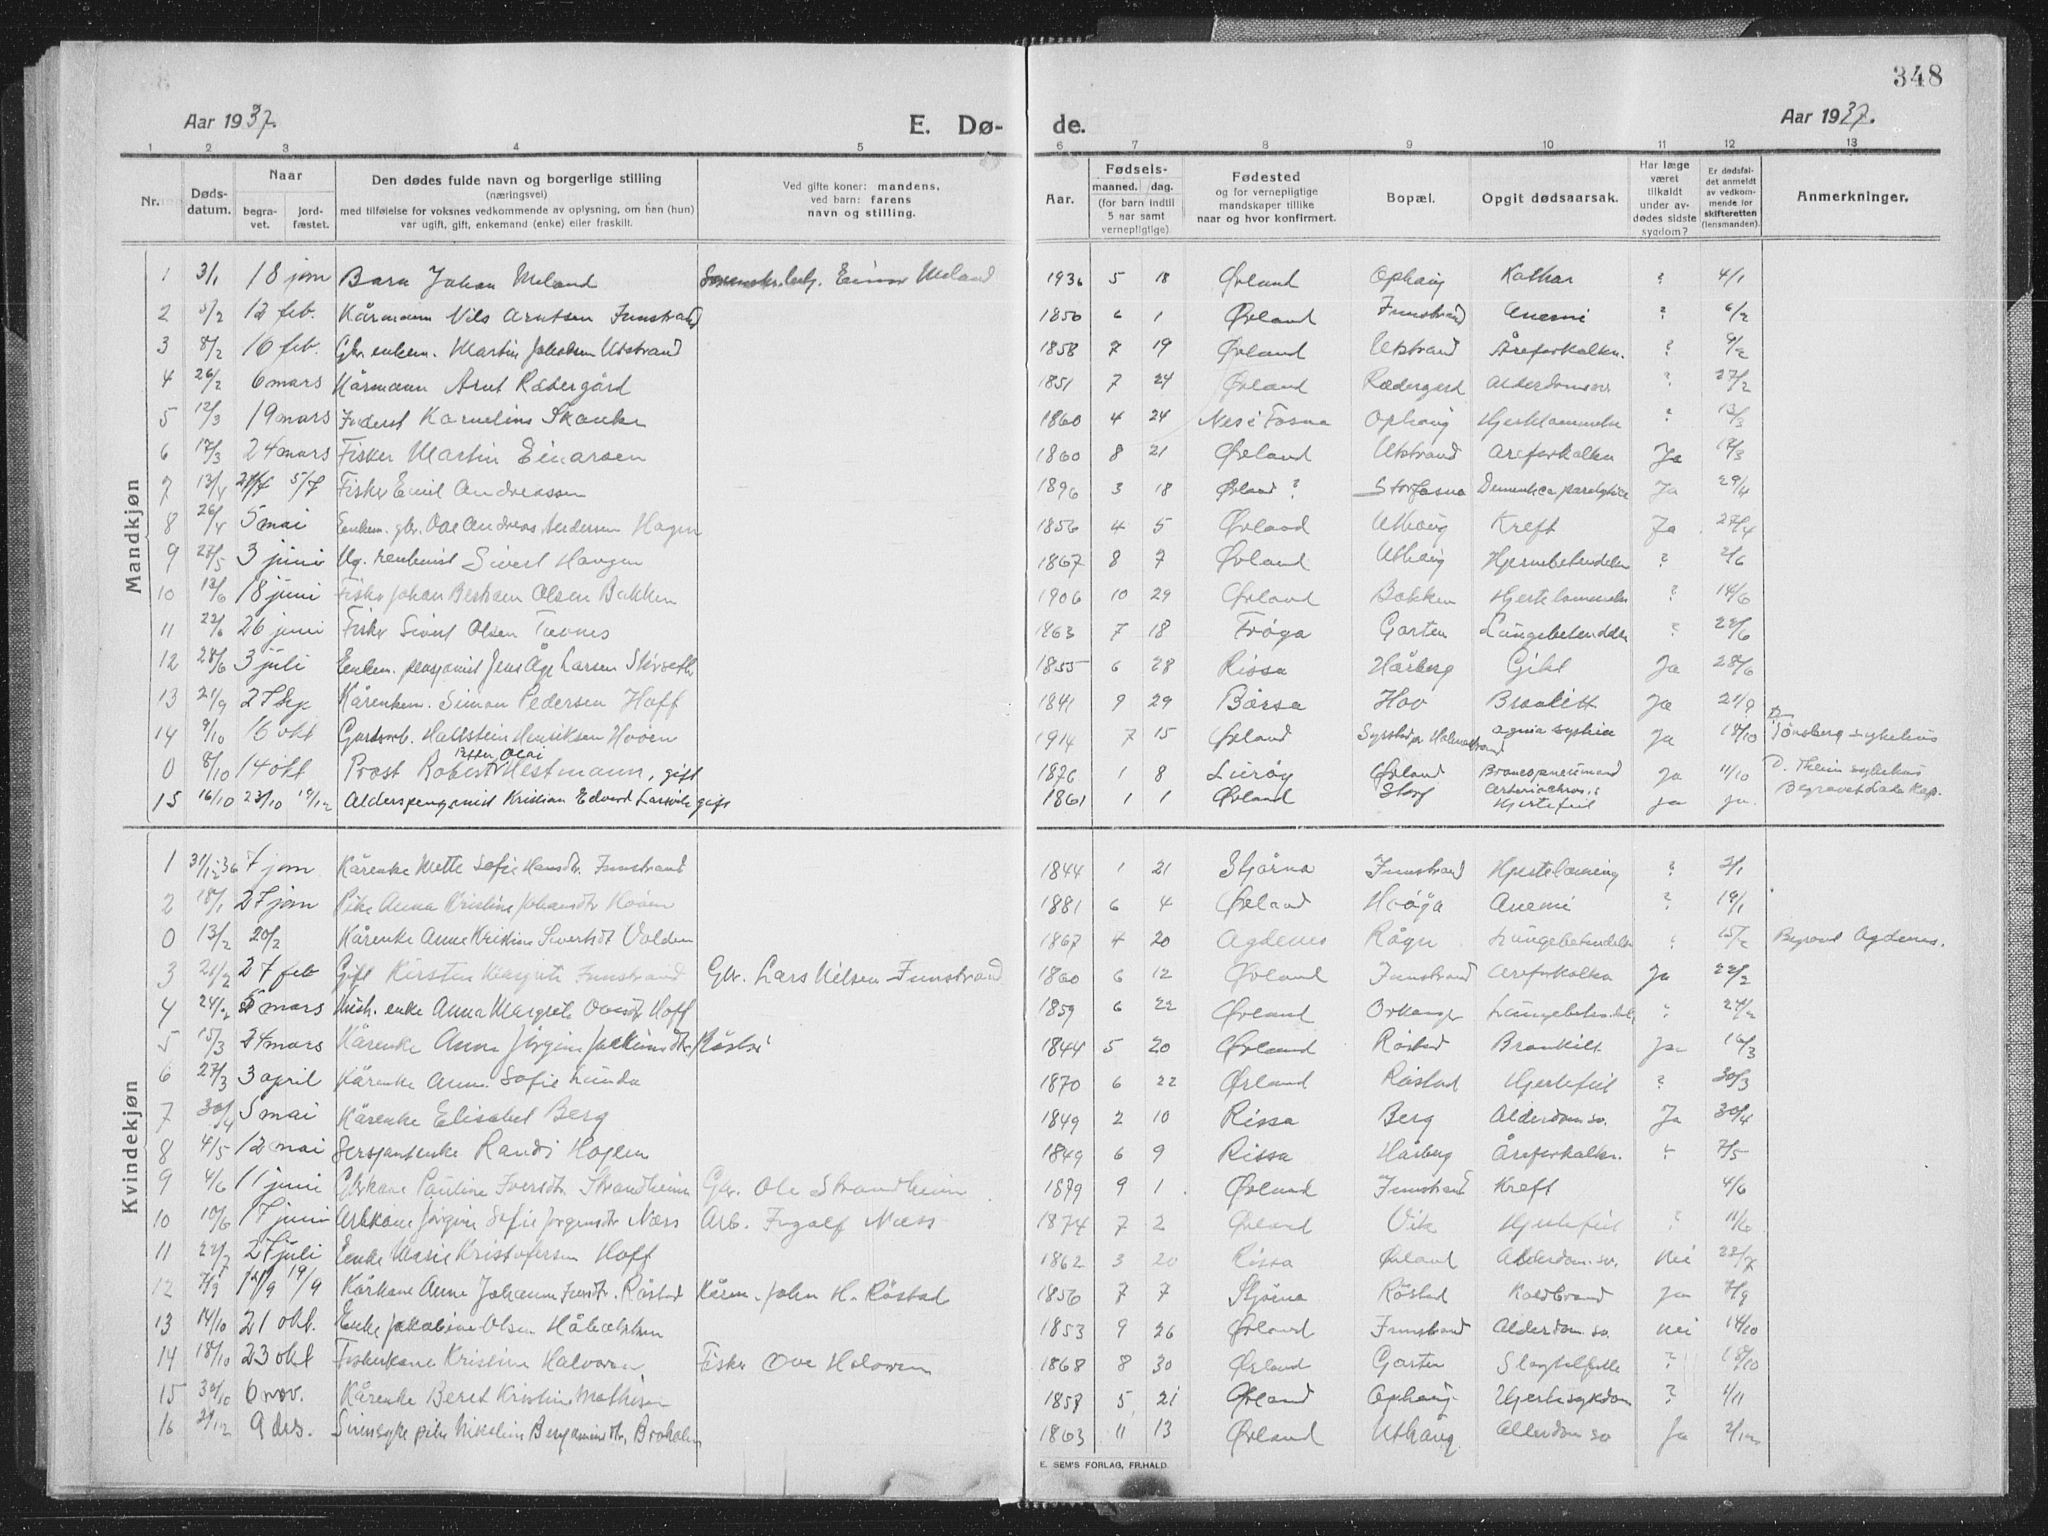 348
Aar 1937.
E. Dø-
de.
Aar 1937.
1 2 3 4 5 6 7 8 9 10 11 12 13
Nr.
Døds-
datum.
Naar
begra-
vet.
jord-
fæstet.
Den dødes fulde navn og borgerlige stilling
(næringsvei)
med tilføielse for voksnes vedkommende av oplysning, om han (hun)
var ugift, gift, enkemand (enke) eller fraskilt.
Ved gifte koner: mandens,
ved barn: farens
navn og stilling.
Aar.
Fødsels-
maaned. dag.
(for barn indtil
5 aar samt
vernepligtige).
Fødested
og for vernepligtige
mandskaper tillike
naar og hvor konfirmert.
Bopæl.
Opgit dødsaarsak.
Har læge
været
tilkaldt
under av-
dødes sidste
sygdom?
Er dødsfal-
det anmeldt
av vedkom-
mende for
skifteretten
(lensmanden).
Anmerkninger.
Mandkjøn
1 3/1 18 jan Barn Johan Meland Einar Meland 1936 5 18 Ørland Ophaug ? 4/1
2 5/2 12 feb. Kårmann Nils Arntsen Innstrand 1850 6 1 Ørland Innstrand Anemi ? 6/2
3 8/2 16 feb. Gbr. enkem. Martin Jakobsen Utstrand 1858 7 19 Ørland Utstrand Åreforkalkn. ? 9/2
4 26/2 6 mars Kårmann Arnt Rædergård 1851 7 24 Ørland Rædergård ? 27/2
5 12/3 19 mars Kornelius Skanke 1860 4 24 Nes i Fosna Ophaug Hjertelammelse ? 13/3
6 17/3 24 mars Fisker Martin Einarsen 1860 8 21 Ørland Utstrand Åreforkalkn Ja 19/3
7 13/4 21/4 5/7 Fisker Emil Andreassen 1896 3 18 Ørland ? Storfosna Dementica paralytica Ja 29/4
8 26/4 5 mai Enkem. gbr. Ove Andreas Andersen Hagen 1856 4 5 Ørland Uthaug Kreft Ja 27/4
9 27/5 3 juni Ug. Sivert Haugen 1867 8 7 Ørland Uthaug ? 2/6
10 13/6 18 juni Fisker Johan Olsen Bakken 1906 10 29 Ørland Bakken Hjertelammelse ? 14/6
11 22/6 26 juni Fisker Sivert Olsen 1863 7 18 Frøya Garten Lungebetendelse ? 22/6
12 28/6 3 juli Enkem. pensjonist Jens Åge Larsen 1855 6 28 Rissa Hårberg Gikt Ja 28/6
13 21/9 27 sep Kårenkem. Simon Pedersen Hoff 1841 9 29 Børsa Hov Bronkitt Ja 21/9
14 9/10 16 okt Gardsarb. Hallstein Henriksen Hoven 1914 7 15 Ørland Ja 18/10 D. Tønsberg sykehus
0 8/10 14 okt Prost Robert Olai Hestmann, gift 1876 1 8 Lurøy Ørland Ja 11/10 D. Theim sykehus
15 16/10 23/10 19/12 Alderspensjonist Kristian Edvard Larsvik gift 1861 1 1 Ørland Storf Hjertefeil ja ja. Begravet Lade Kap.
Kvindekjøn
1 31/12 36 7 jan Kårenke Mette Sofie Hansdtr. Innstrand 1844 1 21 Stjørna Innstrand Hjertelamning ? 2/1
2 18/1 27 jan Pike Anna Kristine Johansdtr Hovin 1881 6 4 Ørland Anemi ? 19/1
0 13/2 20/2 Kårenke Anne Kristine Sivertsdt Volden 1867 4 20 Agdenes Lungebetendelse ? 15/2 Begravet Agdenes.
3 21/2 27 feb Gift Kirsten Margrete Innstrand Gbr. Lars Nilsen Innstrand 1860 6 12 Ørland Innstrand Åreforkalkn Ja 22/2
4 24/2 5 mars enke Anna Margrete Hoff 1859 6 22 Ørland Orkanger Lungebetendelse ? 27/2
5 15/3 24 mars Kårenke Anne Jørgine Røstad 1844 5 20 Ørland Røstad Bronkitt Ja 16/3
6 27/3 3 april Kårenke Anne Sofie Lunde 1870 6 22 Ørland Røstad Hjertefeil ? 30/3
7 30/4 5 mai Kårenke Elisabet Berg 1849 2 10 Rissa Berg Alderdom sv. Ja 30/4
8 4/5 12 mai Sersjantenke Randi Hogen 1849 6 9 Rissa Hårberg Åreforkalkn. ? 7/5
9 4/6 11 juni Gbrkone Pauline Iversdtr Strandheim Gbr. Ole Strandheim 1879 9 1 Ørland Innstrand Kreft 4/6
10 10/6 17 juni Arbkone Jørgine Sofie Jørgensdtr Næss Arb. Ingolf Næss 1874 7 2 Ørland Vik Hjertefeil ? 11/6
11 22/7 27 juli Enke Marie Kristofersen Hoff 1862 3 20 Rissa Ørland Alderdom. sv. Nei 23/7
12 7/9 12/9 19/9 Kårkone Anne Johanna Røstad Kårm. John H. Røstad 1856 7 7 Stjørna Røstad Koldbrand Ja 7/9
13 14/10 21 okt. Enke Jakobine Olsen 1853 9 26 Ørland Innstrand Alderdom sv. Nei 14/10
14 18/10 23 okt Fiskerkone Kristine Halvorsen Fisker Ove Halvorsen 1868 8 30 Ørland Garten Slagtilfelle ? 18/10
15 30/10 6 nov. Kårenke Beret Kristine Mathisen 1858 5 21 Ørland Ophaug Hjertesykdom ? 1/11
16 2/12 9 des. Sinnsyke pike Nikoline Benjaminsdtr. Brekolm 1863 11 13 Ørland Uthaug Alderdom sv Ja 2/12
E. SEM'S FORLAG, FR.HALD